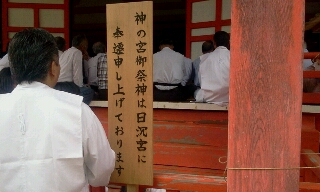 神の宮御祭神は日沉宮に
奉遷申し上げております